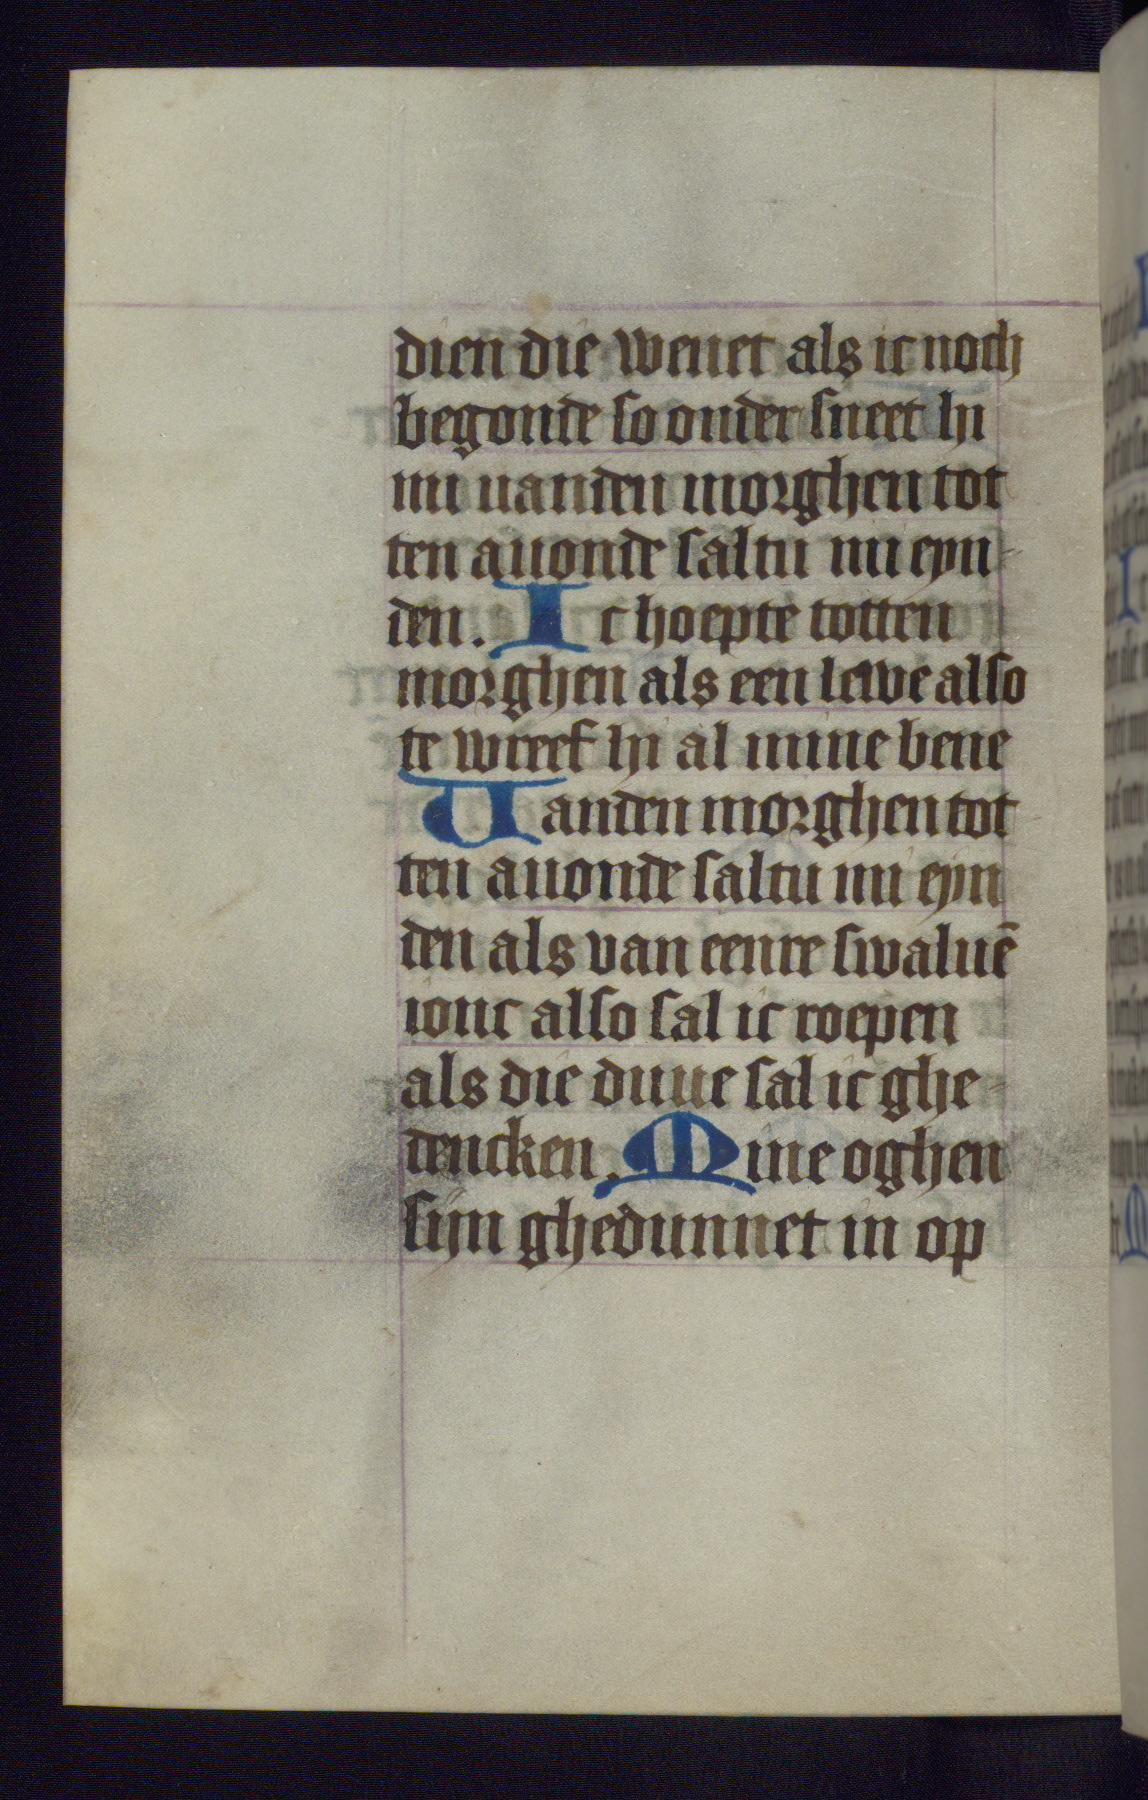 dien die weuet als ic noch
begonde so onder sneet hi
mi uanden morghen tot
ten auonde saltu mi eyn-
den. Ic hoepte totten
morghen als een lewe also
te wreef hi al mine bene
Uanden morghen tot
ten auonde saltu mi eyn
den als van eenre swaluē
ionc also sal ic roepen
als die duue sal ic ghe-
dencken. Mine oghen
sijn ghedunnet in op